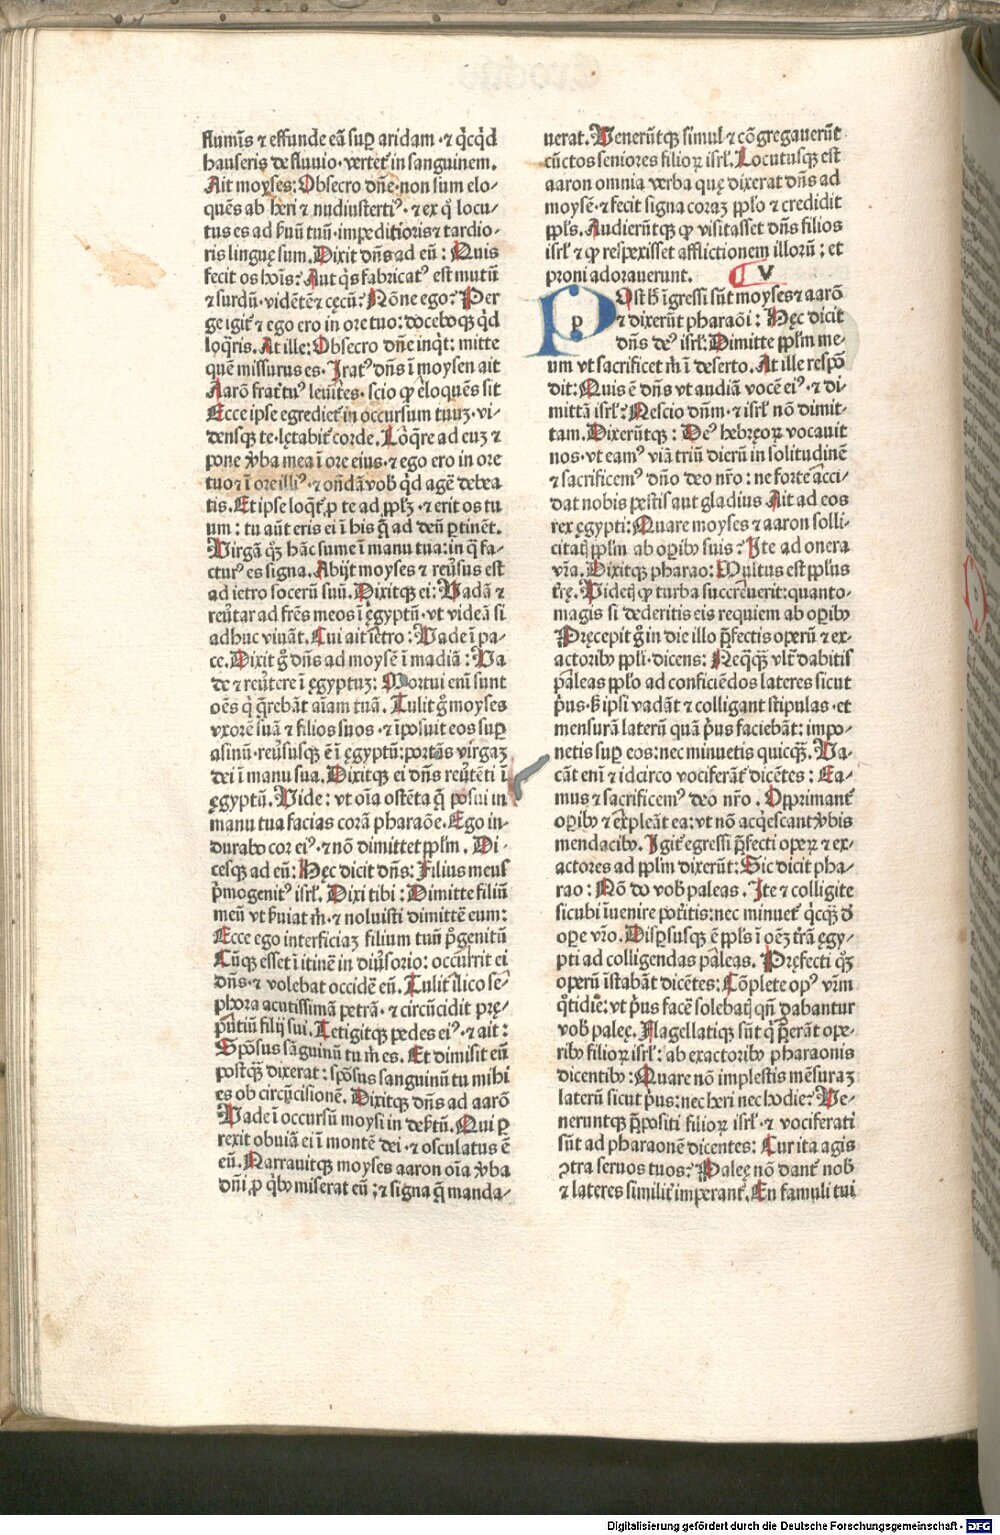 flumīs ⁊ effunde eā suꝑ aridam · ⁊ q̇cq̇d
hauseris de fluvio · vertet᷑ in sanguinem.
Ait moyses: Obsecro dn̄e · non sum elo⸗
quēs ab heri ⁊ nudiusterti⁹ · ⁊ ex q̊ locu⸗
tus es ad ẜuū tuū · impeditioris ⁊ tardio⸗
ris linguę sum. Dixit dn̄s ad eū: Quis
fecit os hoīs: Aut q̇s fabricat⁹ est mutū
⁊ surdū · vidētē ⁊ cęcū: Nōne ego: Per
ge igit᷑ ⁊ ego ero in ore tuo: doceboqꝫ q̇d
loq̄ris. At ille: Obsecro dn̄e inq̇t: mitte
quē missurus es. Irat⁹ dn̄s ī moysen ait
Aarō frat᷑ tu⁹ leuites · scio ꝙ eloquēs sit
Ecce ipse egrediet᷑ in occursum tuuꝫ · vi⸗
densqꝫ te · lętabit᷑ corde. Loq̄re ad euꝫ ⁊
pone v̓ba mea ī ore eius · ⁊ ego ero in ore
tuo ⁊ ī ore illi⁹ · ⁊ on̄dā vob̓ q̇d agē debea
tis. Et ipse loq̄t᷑ ꝓ te ad pp̄lꝫ · ⁊ erit os tu
um: tu aūt eris ei ī his q̄ ad deū ꝑtinēt.
Virgā qꝫ hāc sume ī manu tua: in q̄ fa⸗
ctur⁹ es signa. Abijt moyses ⁊ reu̓sus est
ad ietro socerū suū. Dixitqꝫ ei: Vadā ⁊
reu̓tar ad frēs meos ī ęgyptū · vt videā si
adhuc viuāt. Cui ait ietro: Vade ī pa⸗
ce. Dixit g̊ dn̄s ad moysē ī madiā: Va
de ⁊ reu̓tere ī ęgyptuꝫ: Mortui enī sunt
oēs q̇ q̄rebāt aīam tuā. Tulit g̊ moyses
vxorē suā ⁊ filios suos · ⁊ īposuit eos suꝑ
asinū · reu̓susqꝫ ē ī ęgyptū: portās virgaꝫ
dei ī manu sua. Dixitqꝫ ei dn̄s reu̓tēti ī
ęgyptū. Vide: vt oīa ostēta q̄ posui in
manu tua facias corā pharaōe. Ego in⸗
durabo cor ei⁹ · ⁊ nō dimittet pp̄lm. Di⸗
cesqꝫ ad eū: Hęc dicit dn̄s: Filius meus
p̓mogenit⁹ isrl̓. Dixi tibi: Dimitte filiū
meū vt ẜuiat m̓ · ⁊ noluisti dimittē eum:
Ecce ego interficiaꝫ filium tuū p̓genitū
Cūqꝫ esset ī itinē in diu̓sorio: occurrit ei
dn̄s · ⁊ volebat occidē eū. Tulit īlico se⸗
phora acutissimā petrā · ⁊ circūcidit prę⸗
putiū filij sui. Tetigitqꝫ pedes ei⁹ · ⁊ ait:
Spōsus sāguinū tu m̓ es. Et dimisit eū
postq̄ꝫ dixerat: spōsus sanguinū tu mihi
es ob circūcisionē. Dixitqꝫ dn̄s ad aarō
Vade ī occursū moysi in deẜtū. Qui ꝑ
rexit obuiā ei ī montē dei · ⁊ osculatus ē
eū. Narravitqꝫ moyses aaron oīa v̓ba
dn̄i ꝓ q̇bꝫ miserat eū: ⁊ signa q̄ manda⸗
uerat. Venerūtqꝫ simul · ⁊ cōgregauerūt
cūctos seniores filioꝝ isrl̓. Locutusqꝫ est
aaron omnia verba quę dixerat dn̄s ad
moysē · ⁊ fecit signa coraꝫ pp̄lo ⁊ credidit
pp̄ls. Audierūtqꝫ ꝙ visitasset dn̄s filios
isrl̓ ⁊ ꝙ respexisset afflictionem illorū: et
proni adorauerunt. V
POst h̓ īgressi sūt moyses ⁊ aarō
⁊ dixerūt pharaōi: Hęc dicit
dn̄s de⁹ isrl̓: Dimitte pp̄lm me⸗
um vt sacrificet m̓ ī deserto. At ille respō
dit: Quis ē dn̄s vt audiā vocē ei⁹ · ⁊ di⸗
mittā isrl̓: Nescio dn̄m · ⁊ isrl̓ nō dimit⸗
tam. Dixerūtqꝫ: De⁹ hebręoꝝ vocauit
nos · vt eam⁹ viā triū dierū in solitudinē
⁊ sacrificem⁹ dn̄o deo nr̄o: ne forte acci⸗
dat nobis pestis aut gladius Ait ad eos
rex ęgypti: Quare moyses ⁊ aaron solli⸗
citatꝭ pp̄lm ab oꝑibꝫ suis: Ite ad onera
vr̄a. Dixitqꝫ pharao: Multus est pp̄lus
tr̄ę. Videtꝭ ꝙ turba succreuerit: quanto⸗
magis si dederitis eis requiem ab oꝑibꝫ
Pręcepit g̊ in die illo p̄fectis operū ⁊ ex⸗
actoribꝫ pp̄li · dicens: Neq̄q̄ꝫ vlt̄ dabitis
paleas pp̄lo ad conficiēdos lateres sicut
p̓us · ẜ ipsi vadāt ⁊ colligant stipulas · et
mensurā laterū quā p̓us faciebāt: impo⸗
netis suꝑ eos: nec minuetis quicq̄ꝫ. Va⸗
cāt enī ⁊ idcirco vociferāt᷑ dicētes: Ea⸗
mus ⁊ sacrificem⁹ deo nr̄o. Opprimant᷑
oꝑibꝫ ⁊ expleāt ea: vt nō acq̇escant v̓bis
mendacibꝫ. Igit᷑ egressi p̄fecti operꝝ ⁊ ex⸗
actores ad pp̄lm dixerūt: Sic dicit pha⸗
rao: Nō do vob̓ paleas. Ite ⁊ colligite
sicubi īuenire pot̓itis: nec minuet᷑ q̇cq̄ꝫ d̓
oꝑe vr̄o. Disꝑsusqꝫ ē pp̄ls ī oēꝫ tr̄ā ęgy⸗
pti ad colligendas paleas. Pręfecti qꝫ
operū īstabāt dicētes: Cōplete op⁹ vr̄m
q̊tidie: vt p̓us facē solebatꝭ qn̄ dabantur
vob̓ palee̜. Flagellatiqꝫ sūt q̇ p̄erāt ope⸗
ribꝫ filioꝝ isrl̓: ab exactoribꝫ pharaonis
dicentibꝫ: Quare nō implestis mēsuraꝫ
laterū sicut p̓us: nec heri nec hodie: Ve⸗
neruntqꝫ p̄positi filioꝝ isrl̓ · ⁊ vociferati
sūt ad pharaonē dicentes: Cur ita agis
ꝯtra seruos tuos: Palee̜ nō dant᷑ nob̓
⁊ lateres similit̓ imperant᷑. En famuli tui
Digitalisierung gefördert durch die Deutsche Forschungsgemeinschaft · DFG